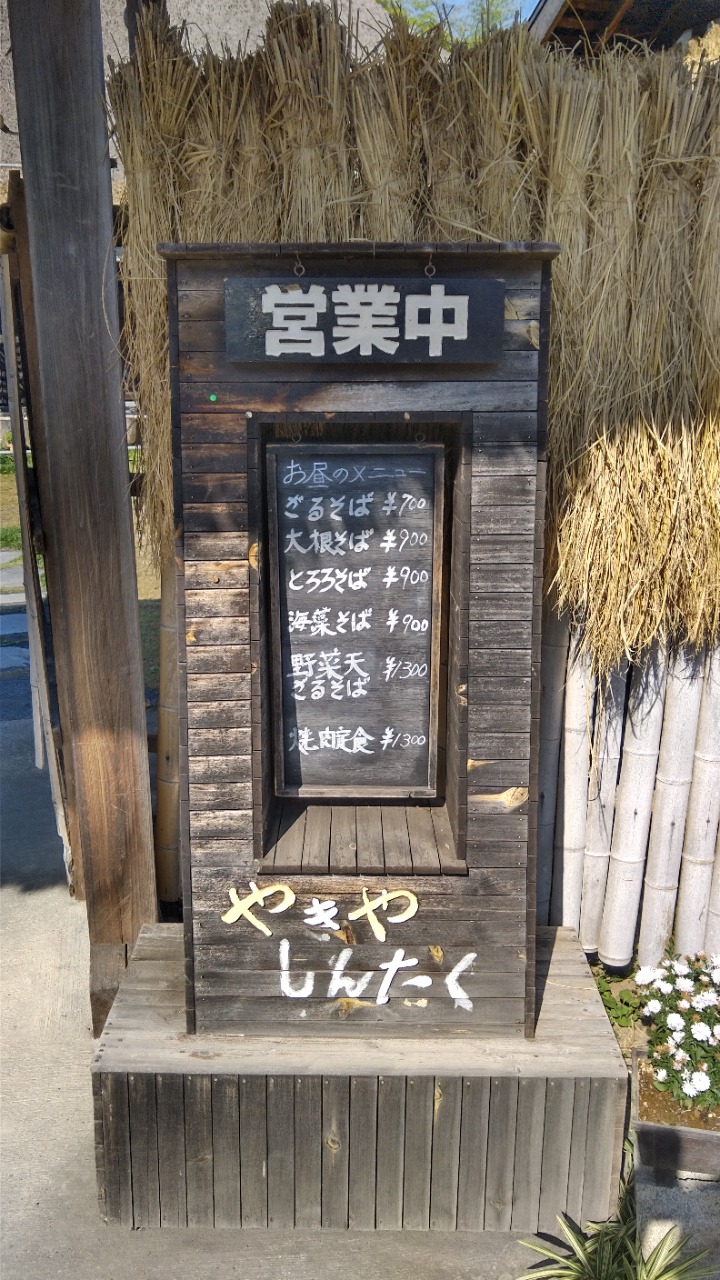 営業中
お昼のメニュー
ざるそば ¥700
大根そば ¥900
とろろそば ¥900
海藻そば ¥900
野菜天 ¥1300
ざるそば
焼肉定食 ¥1300
やきや
しんたく